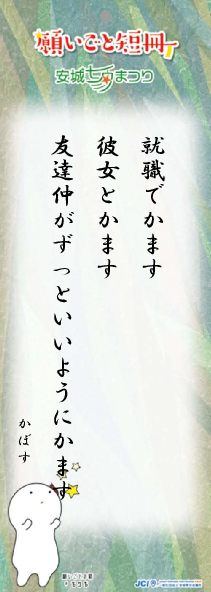 願いごと短冊
安城七夕まつり
就職でかます
彼女とかます
友達仲がずっといいようにかます
かぼす
JCI